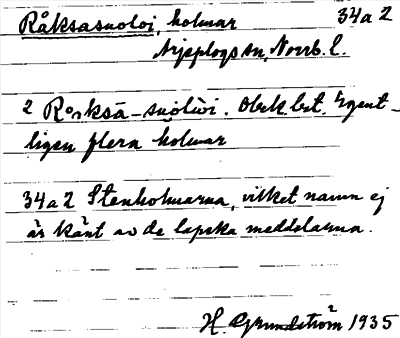 Råksasuoloi, holmar 34a2
Arjeplogs sn, Norrb. l.
2 Råksā-suŏlŭi. Obek. bet. Egent-
ligen flera holmar
34a2 Stenholmarna, vilket namn ej
är känt av de lapska meddelarna.
H. Grundström 1935